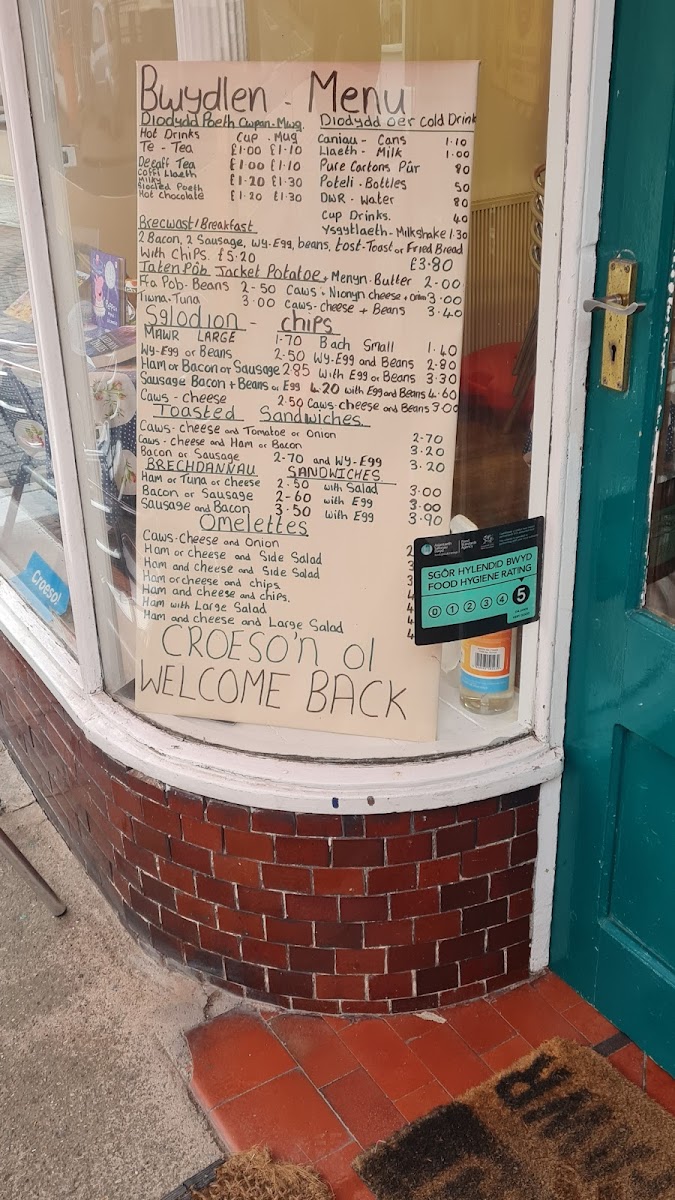 Bwydlen - Menu
Diodydd Poeth Cwpan. Mwg.
Hot Drinks Cup . Mug
Te - Tea £1.00 £1.10
Decaff Tea £1.00 £1.10
Coffi Llaeth
Milky £1.20 £1.30
Siocled Poeth
Hot chocolate £1.20 £1.30
Diodydd oer Cold Drink
Caniau - Cans 1.10
Llaeth - Milk 1.00
Pure Cartons Pûr 80
Poteli - Bottles 50
DWR - Water 80
Cup Drinks. 40
Ysgytlaeth - Milkshake 1.30
Brecwast/Breakfast
2 Bacon, 2 Sausage, Wy-Egg, beans, tost-Toast or Fried Bread
With chips. £5.20 £3.80
Taten Pôb Jacket Potatoe + Menyn. Butter 2.00
Ffa Pob-Beans 2-50 Caws + Nionyn cheese + Onion 3.00
Tiwna-Tuna 3.00 Caws-cheese + Beans 3.40
Sglodion - chips
MAWR LARGE 1.70 Bach Small 1.40
Wy-Egg or Beans 2.50 Wy-Egg and Beans 2.80
Ham or Bacon or Sausage 2.85 With Egg or Beans 3.30
Sausage Bacon + Beans or Egg 4.20 with Egg and Beans 4.60
Caws - cheese 2.50 Caws-cheese and Beans 3.00
Toasted Sandwiches
Caws-cheese and Tomatoe or Onion 2-70
Caws-cheese and Ham or Bacon 3.20
Bacon or Sausage 2-70 and Wy-Egg 3.20
BRECHDANNAU SANDWICHES
Ham or Tuna or cheese 2.50 with Salad 3.00
Bacon or Sausage 2-60 with Egg 3.00
Sausage and Bacon 3.50 with Egg 3.90
Omelettes
Caws-cheese and Onion 2
Ham or cheese and Side Salad 3
Ham and cheese and Side Salad
Ham or cheese and chips
Ham and cheese and chips. 4
Ham with Large Salad 4
Ham and cheese and Large Salad 4
CROESO'n ol
WELCOME BACK
SGÔR HYLENDID BWYD
FOOD HYGIENE RATING
0 1 2 3 4 5
Croeso!